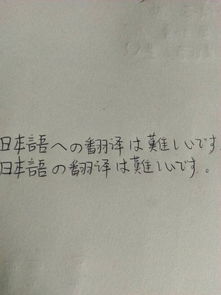 日本語への翻译は難しいです
日本語の翻译は難しいです。